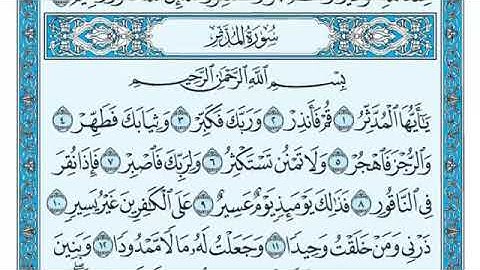 سُورَةُ المُدَّثِّرِ
بِسْمِ اللَّهِ الرَّحْمَٰنِ الرَّحِيمِ
يَٰٓأَيُّهَا الْمُدَّثِّرُ ١ قُمْ فَأَنذِرْ ٢ وَرَبَّكَ فَكَبِّرْ ٣ وَثِيَابَكَ فَطَهِّرْ ٤
وَالرُّجْزَ فَاهْجُرْ ٥ وَلَا تَمْنُن تَسْتَكْثِرُ ٦ وَلِرَبِّكَ فَاصْبِرْ ٧ فَإِذَا نُقِرَ
فِي النَّاقُورِ ٨ فَذَٰلِكَ يَوْمَئِذٍ يَوْمٌ عَسِيرٌ ٩ عَلَى الْكَٰفِرِينَ غَيْرُ يَسِيرٍ ١٠
ذَرْنِي وَمَنْ خَلَقْتُ وَحِيدًا ١١ وَجَعَلْتُ لَهُۥ مَالًا مَّمْدُودًا ١٢ وَبَنِينَ